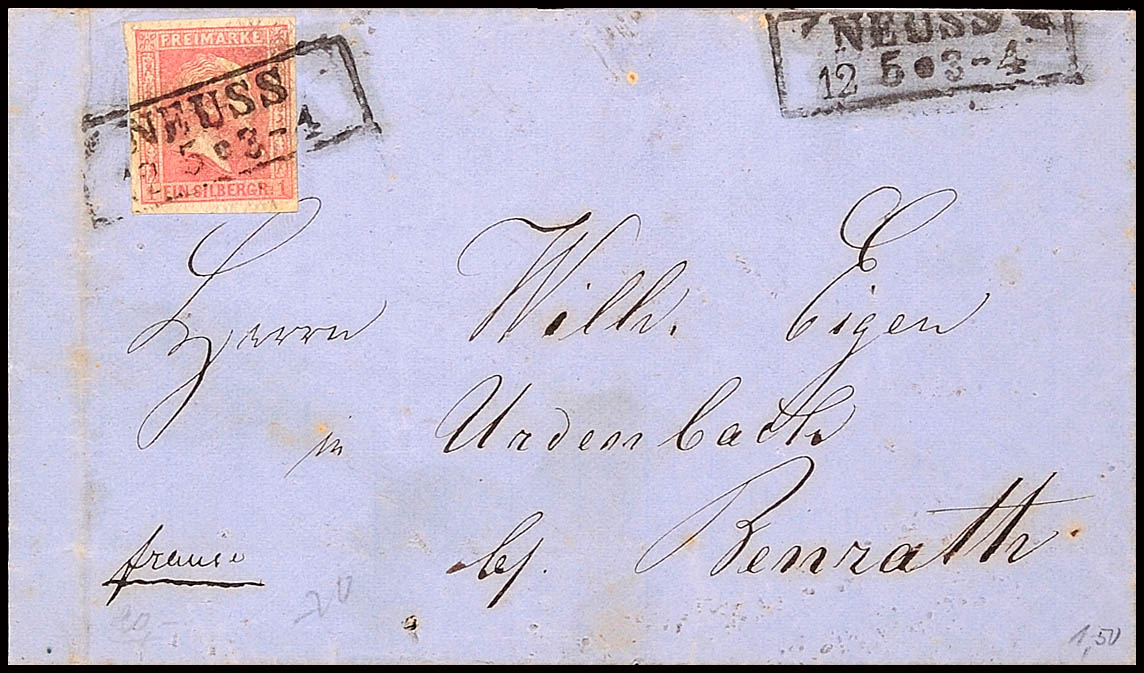 FREIMARKE
NEUSS
12 5 • 3-4
EIN SILBERGR. 1
NEUSS
12 5 • 3-4
Herrn Wilh. Eigen
in Urdenbach
franco
bei Benrath
20
20,-
1,50